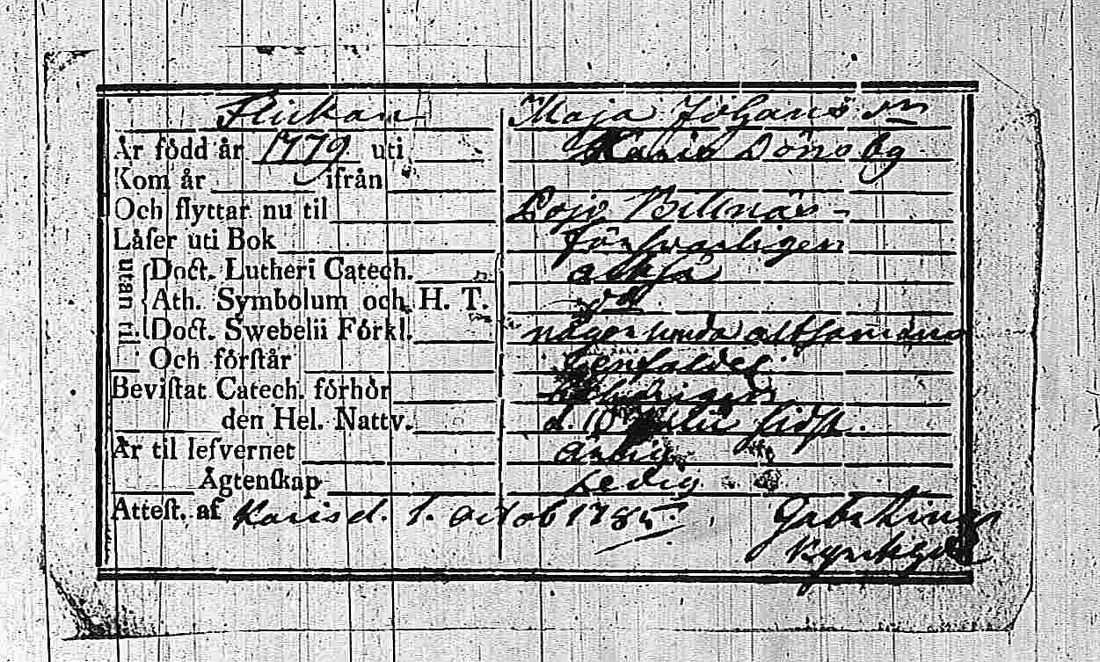 Flickan Maja Johans dr
Är född år 1779 uti Karis Döns by
Kom år ifrån
Och flyttar nu til Lojo Billnäs
Låſer uti Bok försvarligen
utan til Doct. Lutheri Catech. äfſå
Ath. Symbolum och H. T.
Doct. Swebelii Förkl. någorlunda
Och förſtår Enfaldel.
Beviſtat Catech. förhör
den Hel. Nattv. d. 10 Julii ſidſt.
Är til lefvernet ärlig
Ägtenſkap Ledig
Atteſt. af Karis d. 1. Octob 1785.